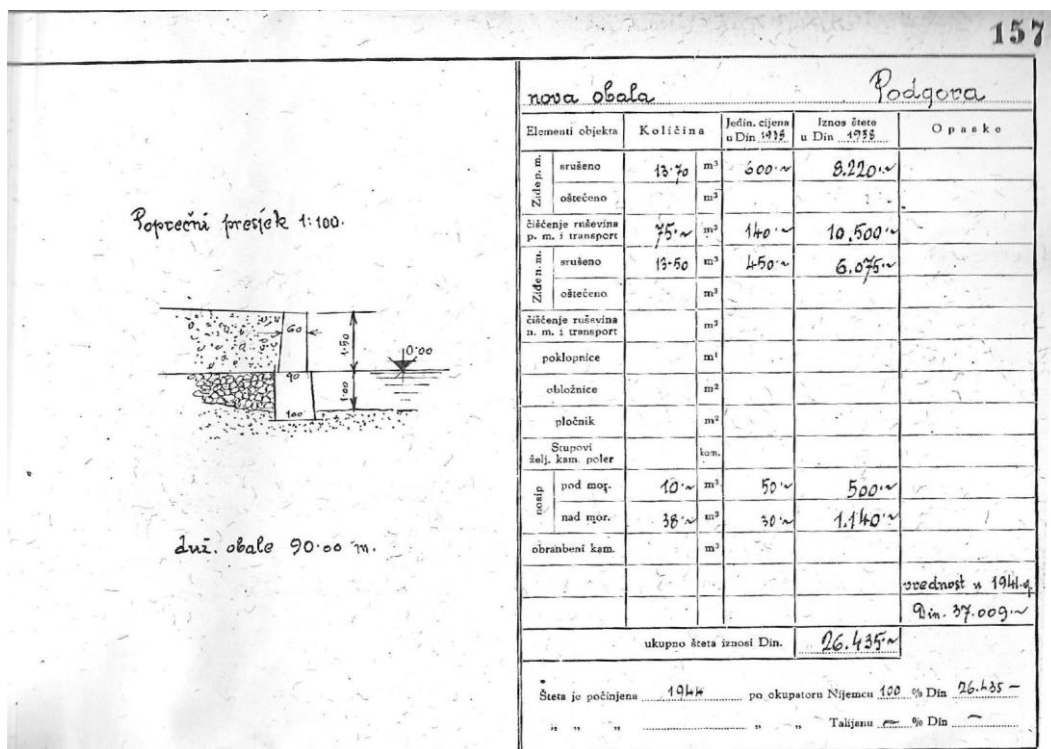 157
Poprečni presjek 1:100.
60
1·50
0·00
90
1·00
100
duž. obale 90·00 m.
nova obala Podgora
Elementi objekta Količina Jedin. cijena u Din 1938 Iznos štete u Din 1938 Opaske
Ziđe p. m. srušeno 13·70 m³ 600·~ 8.220·~
oštećeno m³
čišćenje ruševina p. m. i transport 75·~ m³ 140·~ 10.500·~
Ziđe n. m. srušeno 13·50 m³ 450·~ 6.075·~
oštećeno m³
čišćenje ruševina n. m. i transport m³
poklopnice m¹
obložnice m²
pločnik m²
Stupovi želj. kam. poler kom.
nosip pod mor. 10·~ m³ 50·~ 500·~
nad mor. 38·~ m³ 30·~ 1.140·~
obranbeni kam. m³
vrednost u 1941.g.
Din. 37.009·~
ukupno šteta iznosi Din. 26.435·~
Šteta je počinjena 1944 po okupatoru Nijemcu 100 % Din 26.435 —
„ „ „ „ „ Talijanu — % Din —